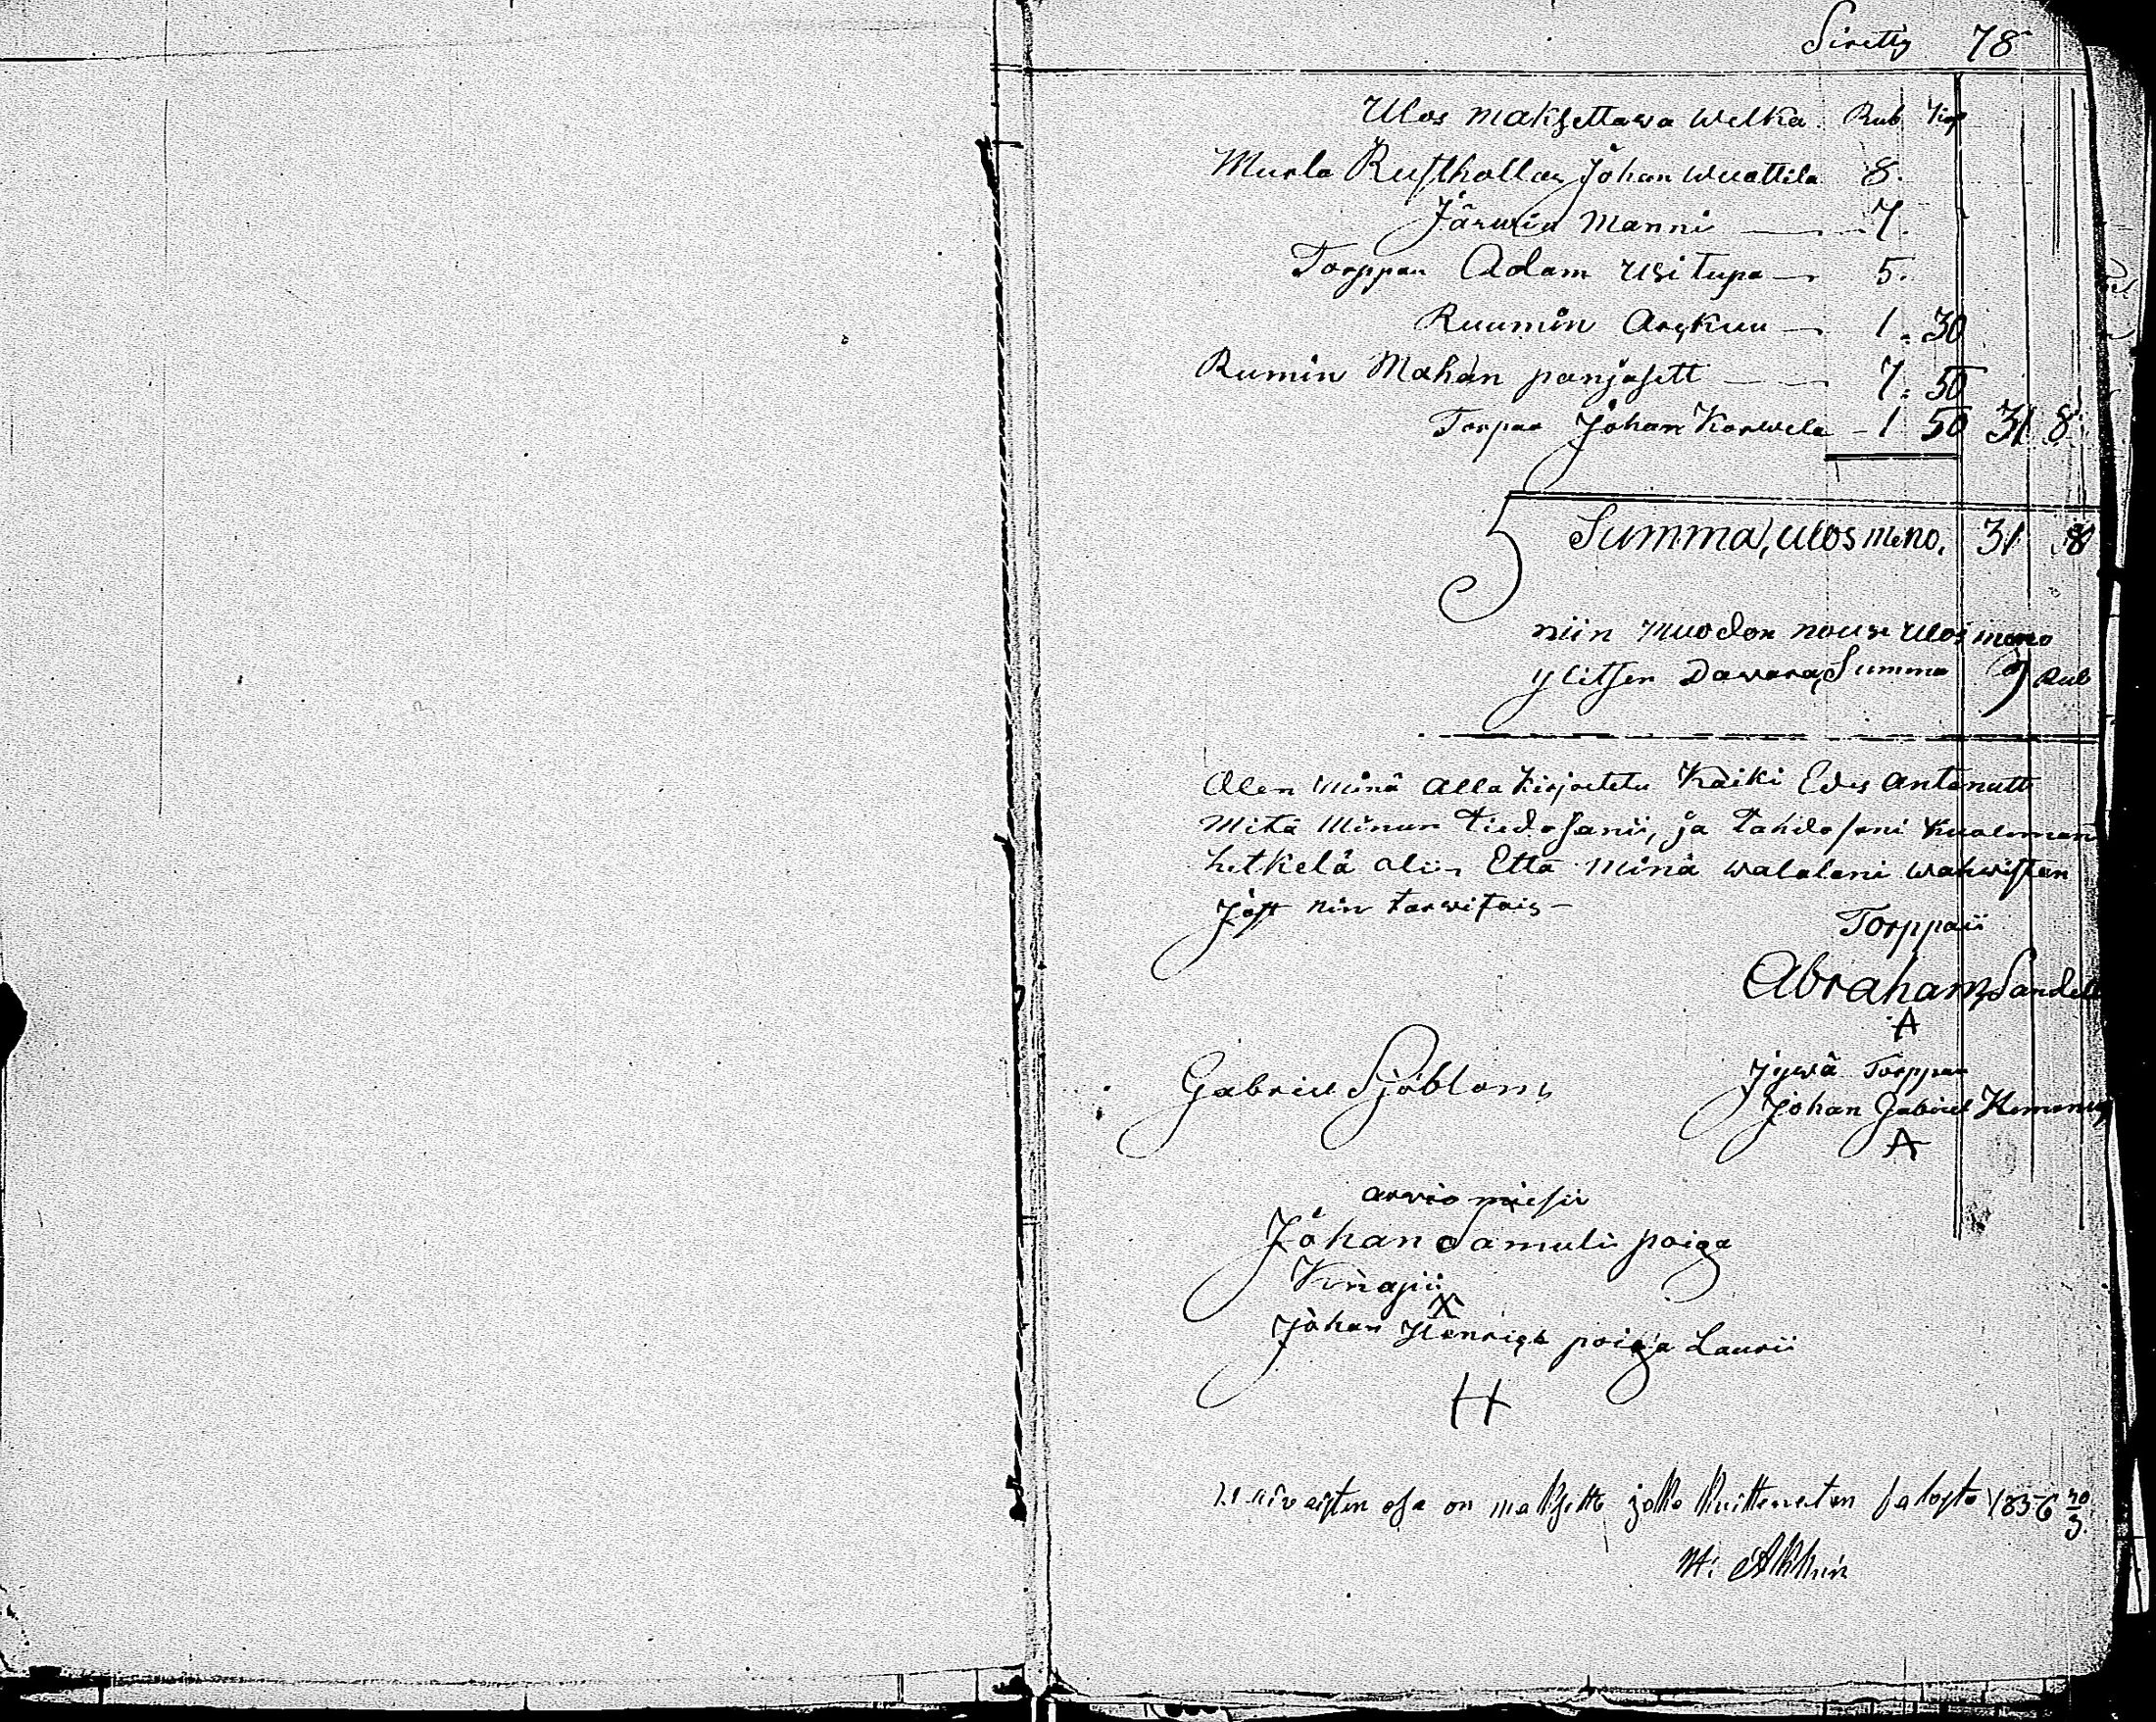 Siretty 78
Ulos maksettawa Welka Rub Kop
Murla Rusthollar Johan Wuottila 8.
Järwin Manni — 7.
Torppari Adam Usitupa — 5.
Ruumin Arckuu — 1. 30
Rumin Mahan panjasett — 7. 50
Torpar Johan Korwela — 1 50 31 8
Summa, Ulos meno, 31 8
niin Muodon nouse Ulos meno
ylitsen Dawara, Summa 9 Rub
Olen Minä alla kirjoitetu Kaiki Edes antanutt
Mitä Minun tiedosanii, ja tahdosoni Kuoleman
hetkelä olii, Että Minä walalani wahwistan
Jost niin tarwitais —
Torppaii
Abraham Sandell
A
Gabriel Sjöblom,
Jywä Torppar
Johan Gabriel
A
arvio miesii
Johan Samulii poiga
Knapii
X
Johan Henrick poiga Laurii
H
osa on maksettu, jolko kuitterataan 1856 20/3.